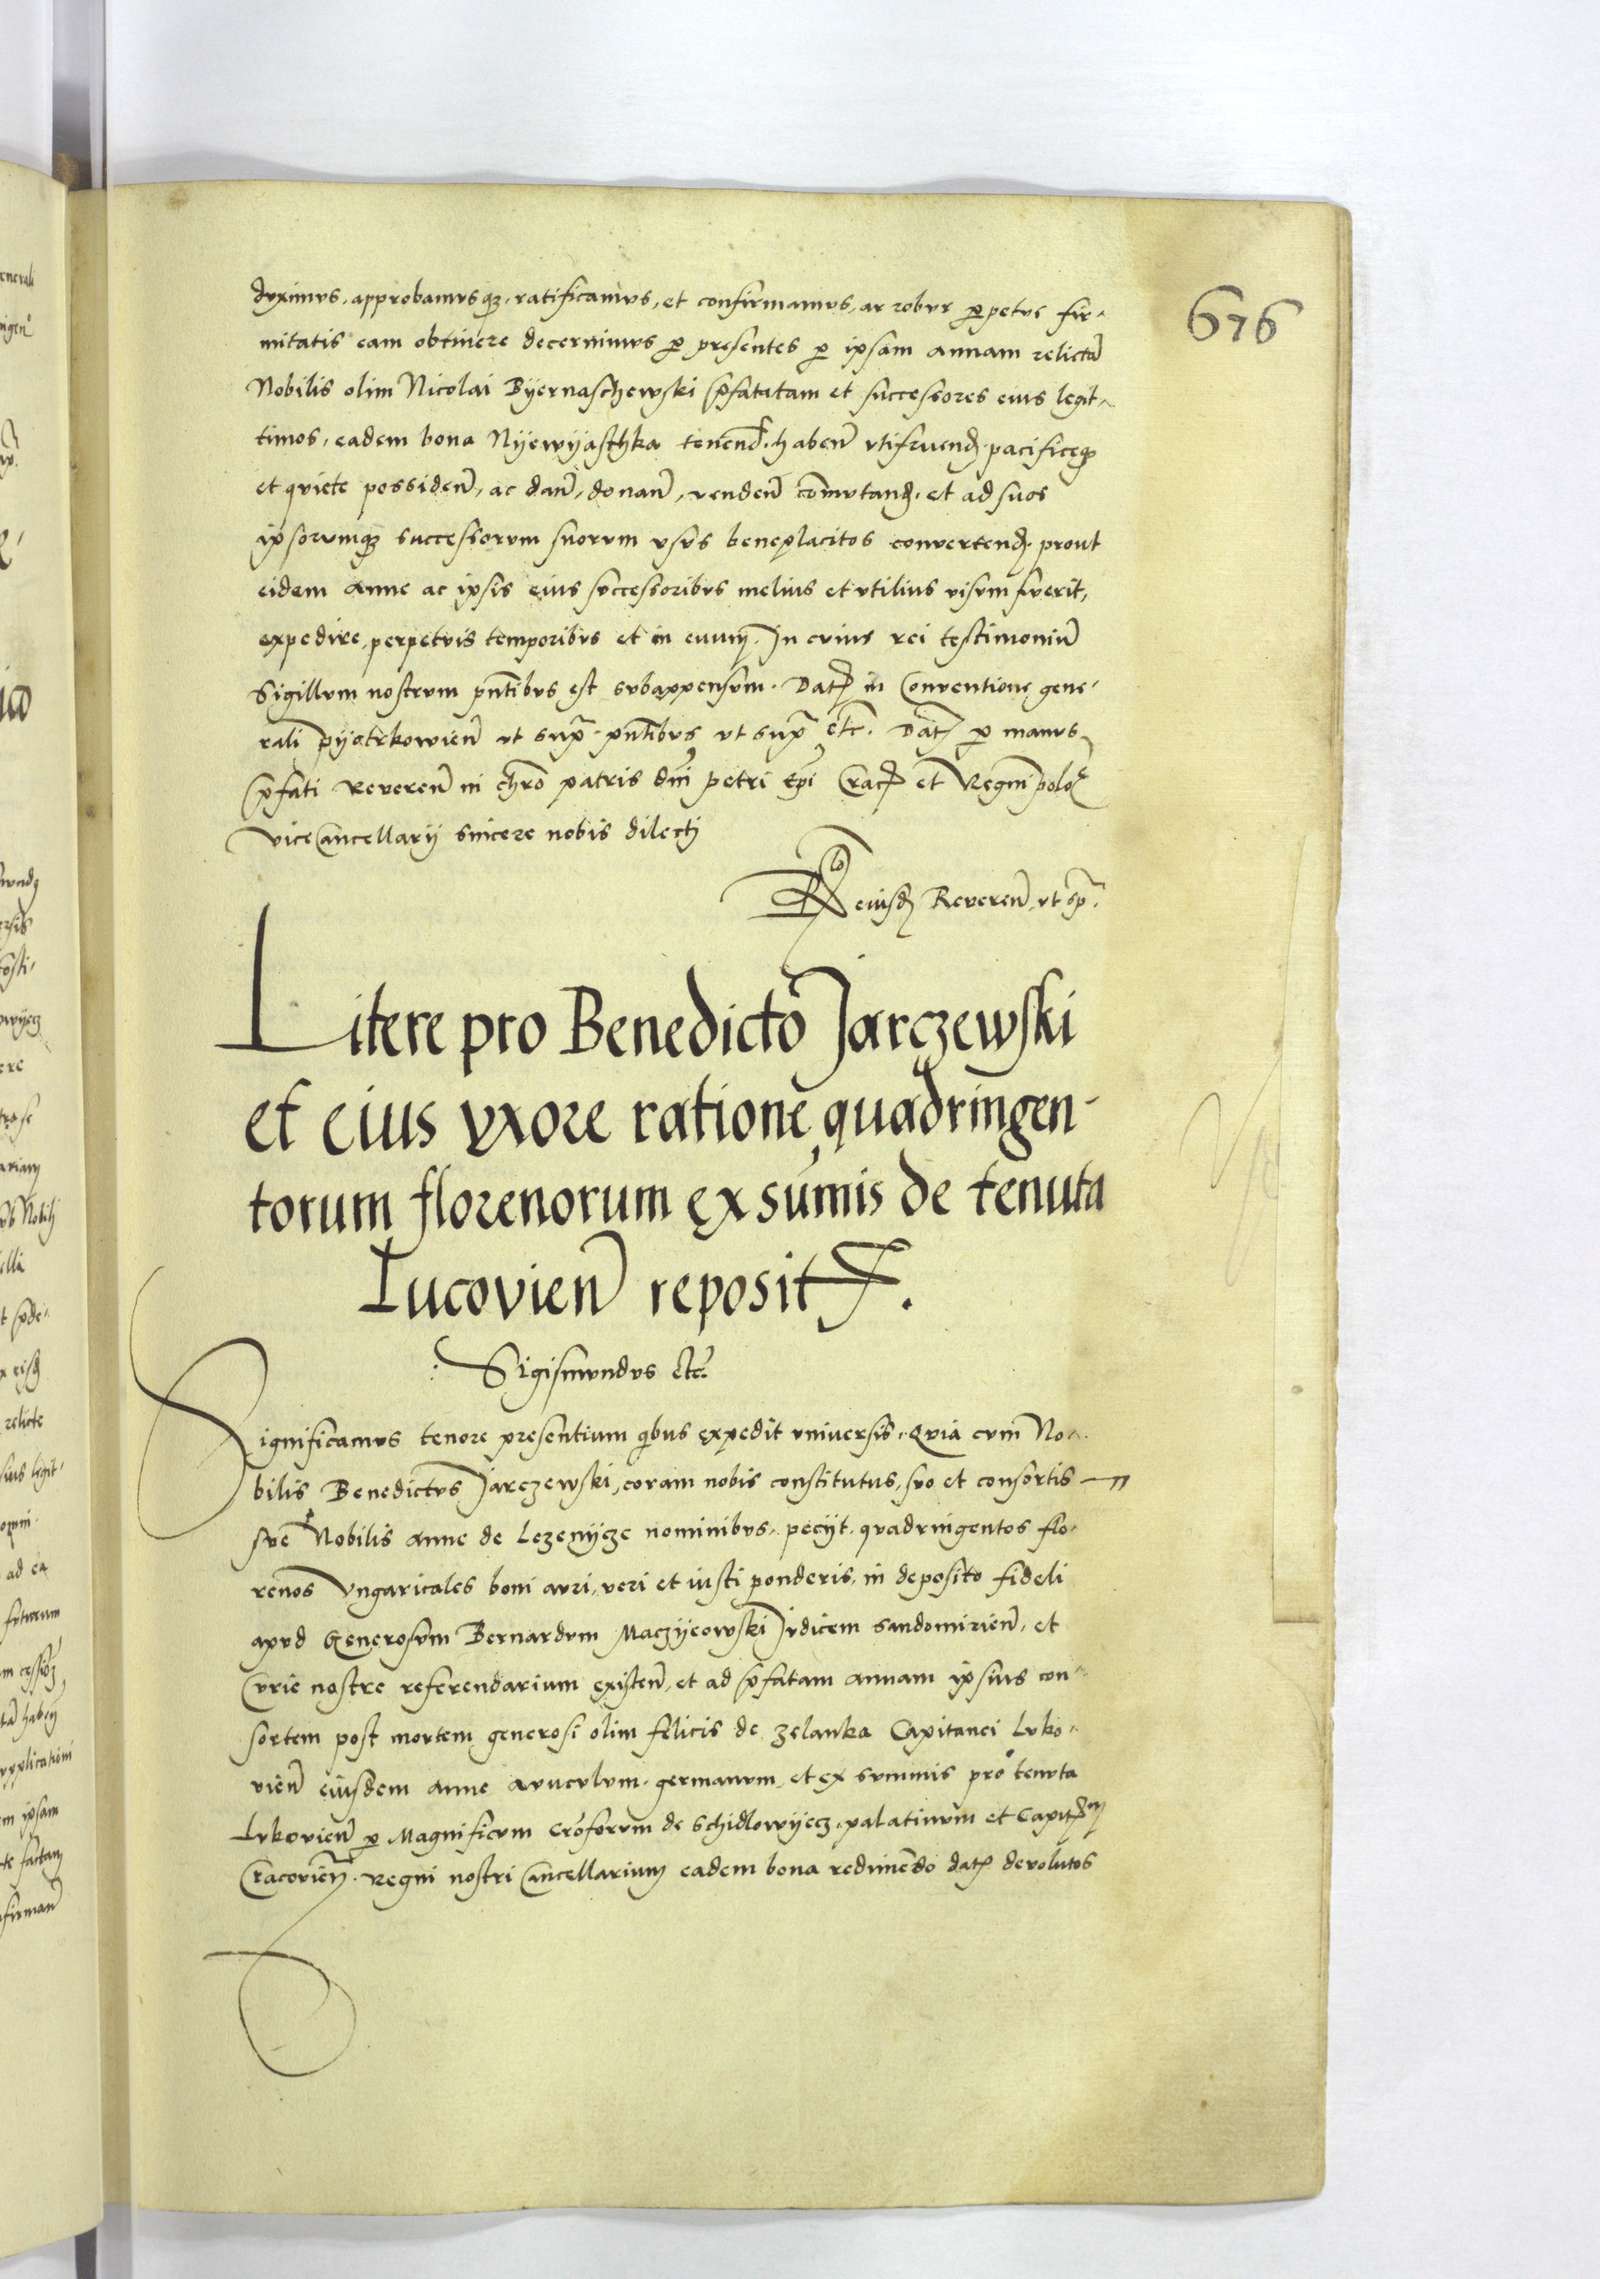 676
duximus, approbamusq3, ratificamus, et confirmamus, ac robur p̱petue fir-
mitatis eam obtinere decernimus p̱ presentes p̱ ipsam annam relictā
Nobilis olim Nicolai Byernaschewski p̄fatatam et successores eius legit-
timos, eadem bona Nyewyaschka tenend̄. haben̄ utifruend̄ pacificeq3
et quiete possiden̄, ac dan̄, donan̄, venden̄ cōmutand̄. et ad suos
ipsorumq3 successorum suorum usus beneplacitos convertend̄. prout
eidem anne ac ipsis eius successoribus melius et utilius visum fuerit,
expedire, perpetuis temporibus et in evum. In cuius rei testimoniū
Sigillum nostrum pn̄tibus est subappensum. Dat̄ in Conventione gene-
rali Pyotrkowien̄ ut supᵃ. pn̄tibus ut supᵃ etc̄. Dat̄ p̱ manus
p̄fati Reveren̄ in chr̄o patris dn̄i petri ep̄i Crac̄ et Regni polo͞e
ViceCancellarij sincere nobis dilecti
Rᵒ eiusd̄ Reveren̄ ut sp̄ᵃ.
Litere pro Benedicto Jarczewski
et eius uxore ratione quadringen-
torum florenorum ex sūmis de tenuta
Lucovien̄ reposit̄.
Sigismundus etc̄.
Significamus tenore presentium qibus expedit universis. Quia cum No-
bilis Benedictus Jarczewski, coram nobis constitutus, suo et consortis
sue Nobilis anne de Lezenycze nominibus, pecijt. quadringentos flo-
renos Ungaricales boni auri, veri et iusti ponderis, in deposito fideli
apud Generosum Bernardum Maczyeowski Judicem sandomirien̄, et
Curie nostre referendarium existen̄, et ad p̄fatam annam ipsius con-
sortem post mortem generosi olim felicis de Zelanka Capitanei Luko-
vien̄ eiusdem anne avuculum germanum, et ex summis pro tenuta
Lukovien̄ p̱ Magnificum Cr̄oforum de Schidlowyecz, palatinum et Capit̄ᵐ
Cracovien̄. Regni nostri Cancellarium eadem bona redimēdo dat̄ devolutos